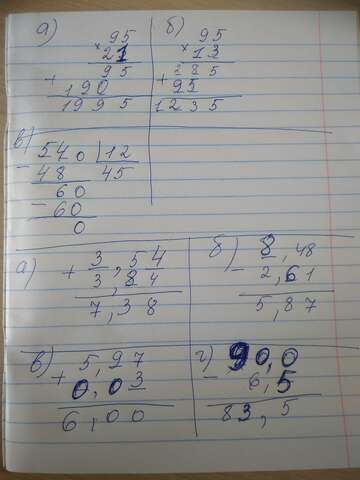 а) 95 б) 95
× 21 × 13
95 285
+ 190 + 95
1995 1235
в)
540 | 12
- 48 45
60
- 60
0
а) + 3,54 б) 8,48
3,84 - 2,61
7,38 5,87
в) 5,97 г) 90,0
+ 0,03 - 6,5
6,00 83,5